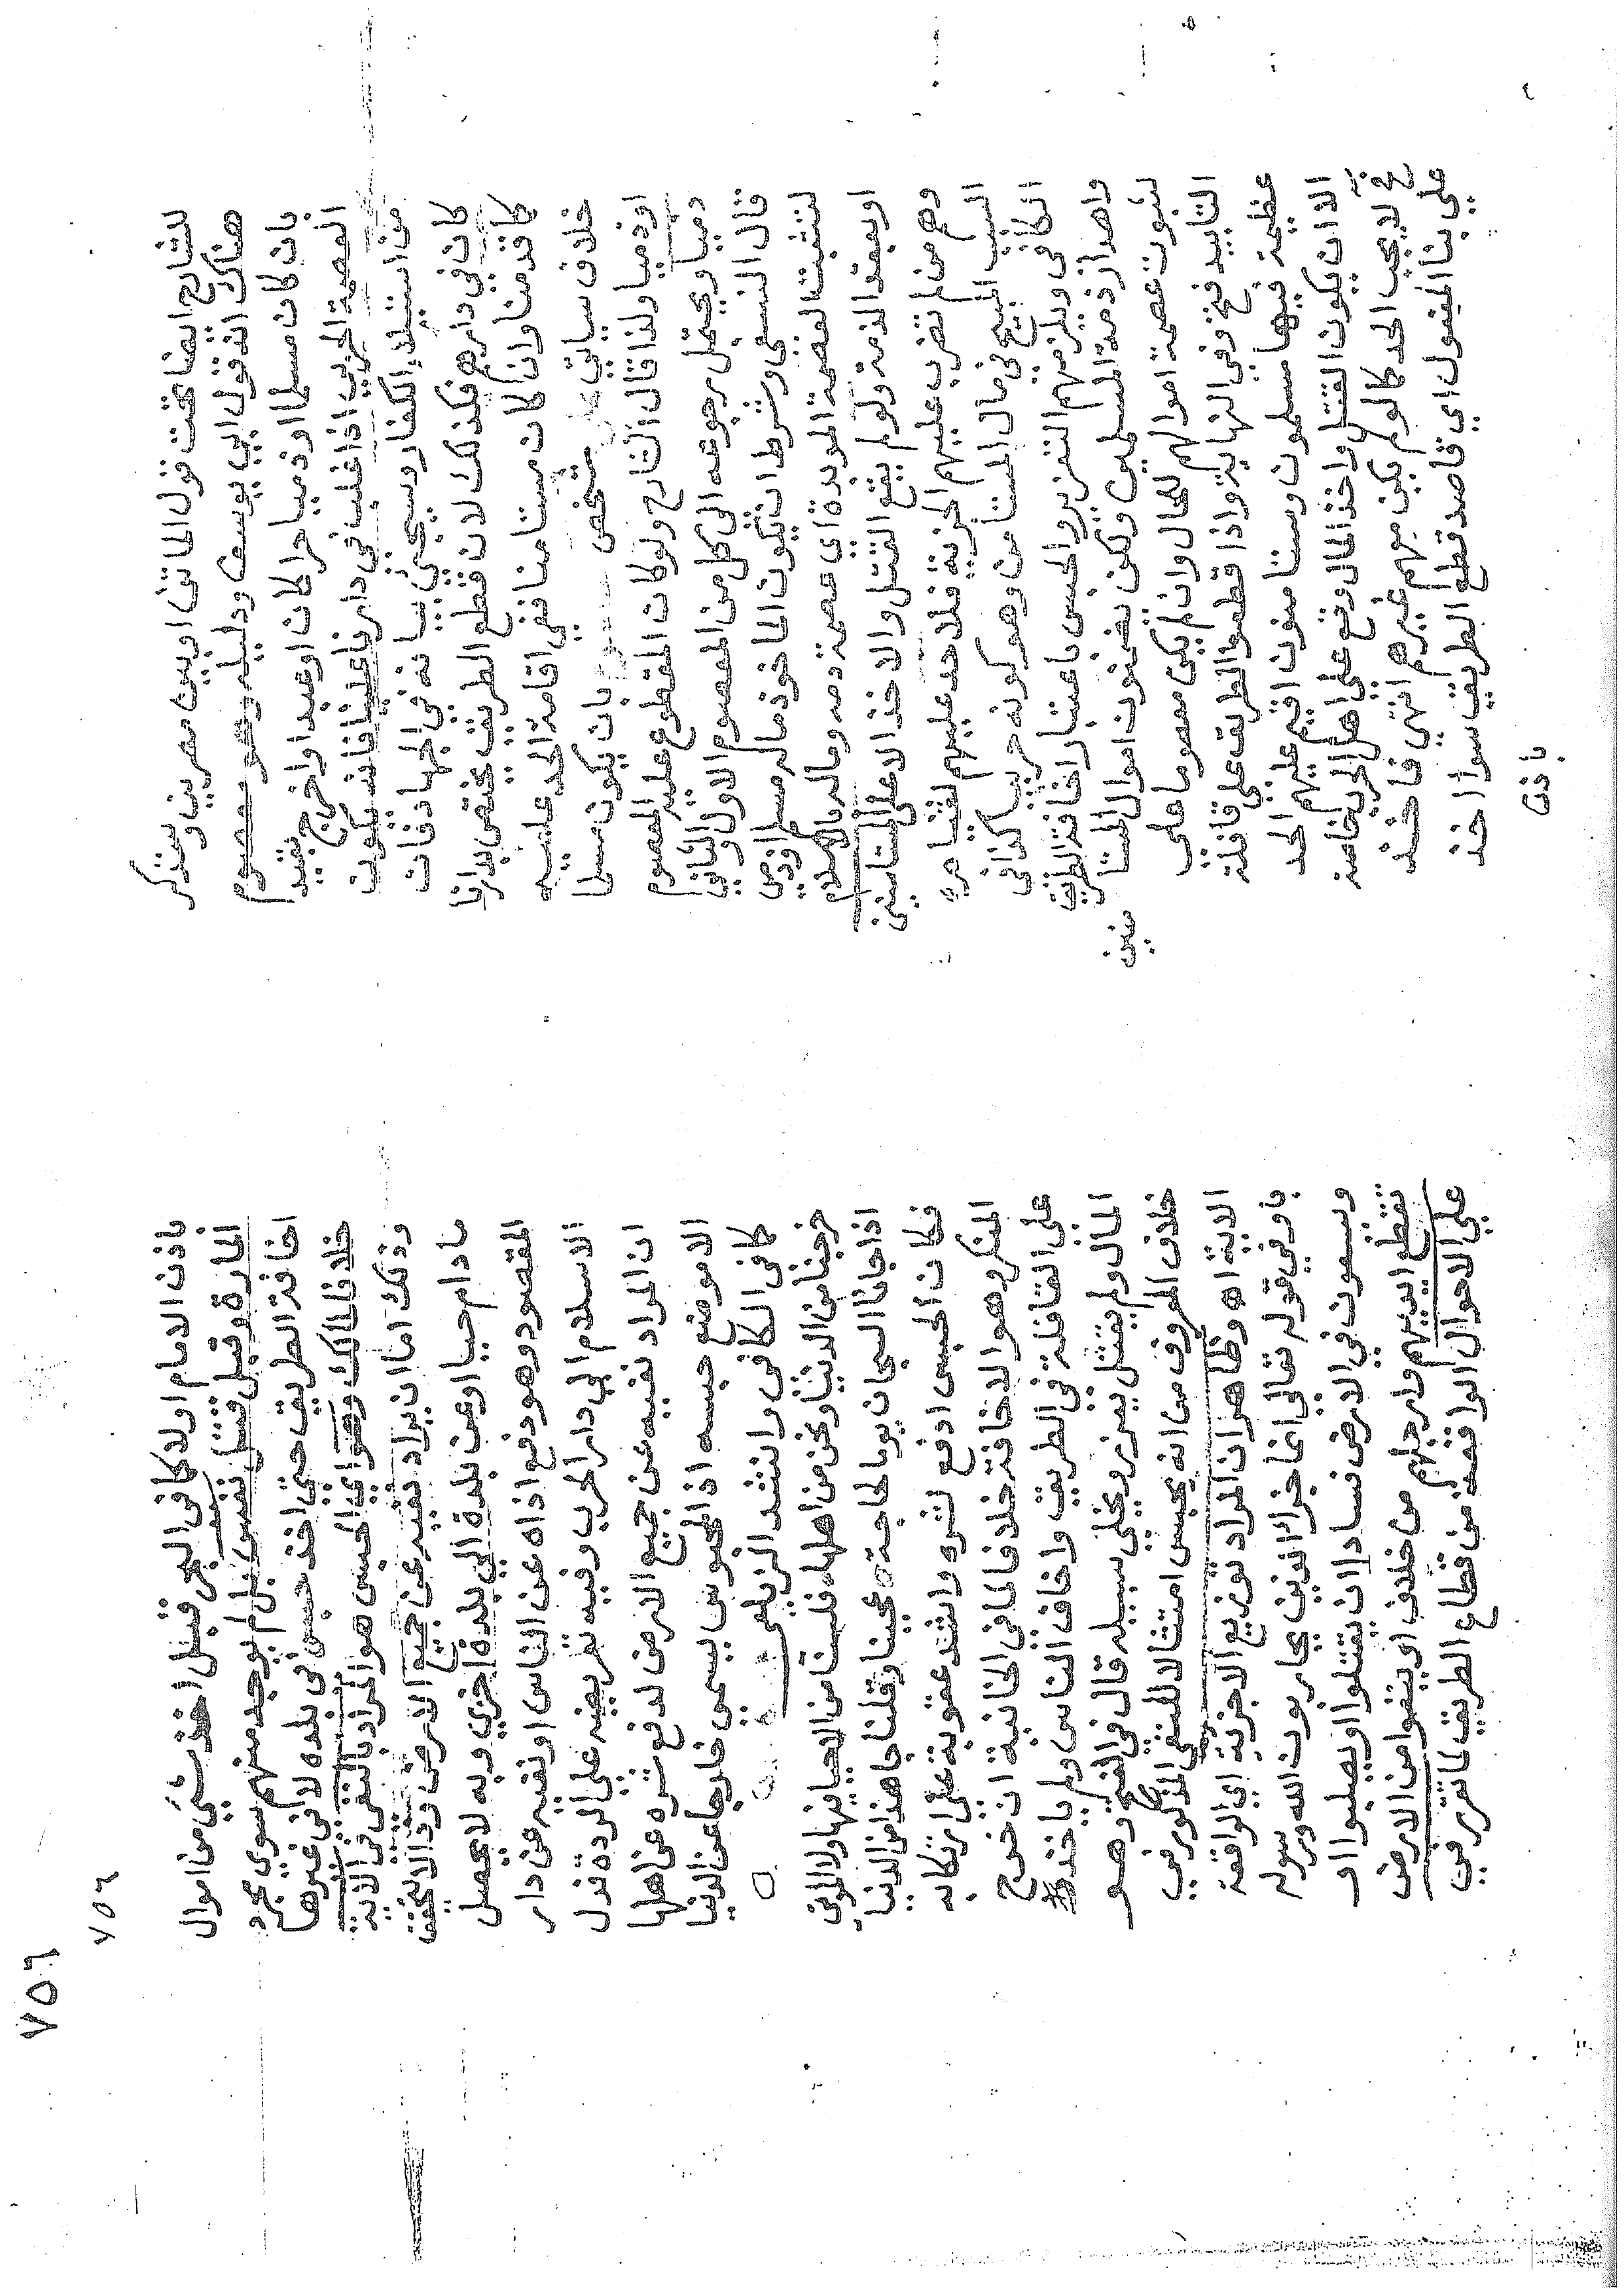 للشارح ايضا تحت قول الماتن او بين مصرين وسنذكر
هناك انه قول ابي يوسف ودليله وهو معصوم
بان كان مسلما او ذميا حرا كان او عبدا واخرج بقيد
العصمة الحربي اذا غلب في دارنا علينا فانه يكون
من استيلاء الكفار وسيجئ بيانه في الجهاد فان
كان في دارهم فكذلك لان قطع الطريق يختص بدارنا
كما قدمنا وان كان مستامنا ففي اقامة الحد عليه
خلاف سياتي على شخص معصوم بان يكون مسلما
او ذميا ولذا قال الشارح ولو كان المقطوع عليه المعصوم
ذميا ويحتمل رجوعه الى كل من المعصوم الاول والثاني
قال الشمنى وشرط ان تكون الماخوذ ماله مسلما او ذمي
لتثبت العصمة الموبدة اي عصمة دمه وماله بالاسلام
او بعقد الذمة ولو لم يقع القتل والاخذ الا على المستامنين
وهم من لم تضرب عليهم الجزية فلا حد عليهم لقيام
السبب المبيح في مال المستامن وهو كونه حربيا كذا في
الكافى ويلزمهم التعزير والحبس باعتبار اخافة الطريق
واهدار ذمة المسلمين ولكن تضمنون اموال المستا
منين
لثبوت عصمة اموالهم للحال وان لم يكن معصوما على
التابيد فتح وفي النهاية واذا قطعوا الطريق على قافلة
عظيمة فيها مسلمون ومستامنون اقيم عليهم الحد
الا ان يكون القتل واخذ المال وقع على اهل الحرب خاصة
فح لا يجب الحد كما لو لم يكن معهم غيرهم انتهى فاخذ
على بنا المفعول اي قاصد قطع الطريق سواء اخذ
باذن
باذن الامام او لا كما في البحر قبل اخذ شئ من اموال
المارة وقبل قتل نفس بل لم يوجد منهم سوى مجرد
اخافة الطريق حتى اخذ حبس في بلده لا في غيرها
خلافا لمالك وهو اي الحبس هو المراد بالنفى في الاية
وذلك اما ان يراد نفيه عن جميع الارض وذا لا يتحقق
ما دام حيا او عن بلدة الى بلدة اخرى وبه لا يحصل
المقصود وهو دفع اذاه عن الناس او نفيه عن دار
الاسلام الى دار الحرب وفيه تعريضه على الردة فدل
ان المراد نفيه عن جميع الارض لدفع شره عن اهلها
الا موضع حبسه اذ المحبوس يسمى خارجا عن الدنيا
كما في الكافى وانشد الزيلعى
خرجنا من الدنيا ونحن من اهلها فلسنا من الاحيا فيها ولا الموتى
اذا جانا السجان يوما لحاجة عجبنا وقلنا جا هذا من الدنيا
فكان الحبس ادفع لشره واشد عقوبة على ارتكابه
المنكر وهو الاخافة خلافا لما في الخانية ان خرج
على القافلة في الطريق واخاف الناس ولم ياخذ
المال ولم يقتل يعزر ويخلى سبيله قال في الفتح وهو
خلاف المعروف من انه يحبس امتثالا للنفى المذكور في
الاية اه وظاهر ان المراد توزيع الاجزية اي الواقعة
باو في قوله تعالى انما جزاؤا الذين يحاربون الله ورسوله
ويسعون في الارض فسادا ان يقتلوا او يصلبوا او
تقطع ايديهم وارجلهم من خلاف او ينفوا من الارض
على الاحوال الواقعة من قطاع الطريق لما تقرر من
٧٥٦
٧٥٦